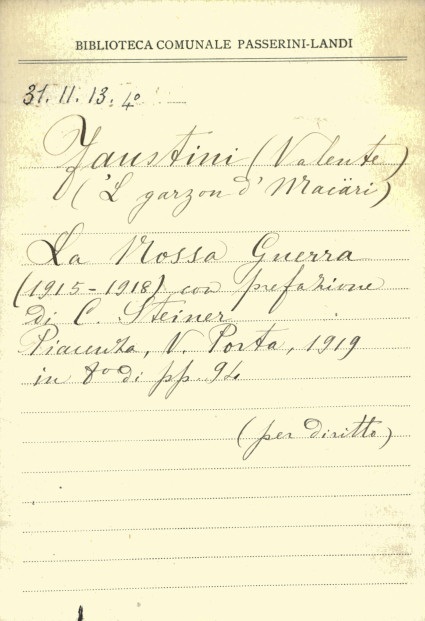 BIBLIOTECA COMUNALE PASSERINI-LANDI
31. 11. 13. 4º
Faustini (Valente)
('L garzon d' Maiäri)
La Nossa Guerra
(1915-1918) con prefazione
di C. Steiner
Piacenza, V. Porta, 1919
in 8º di pp. 94
(per diritto)